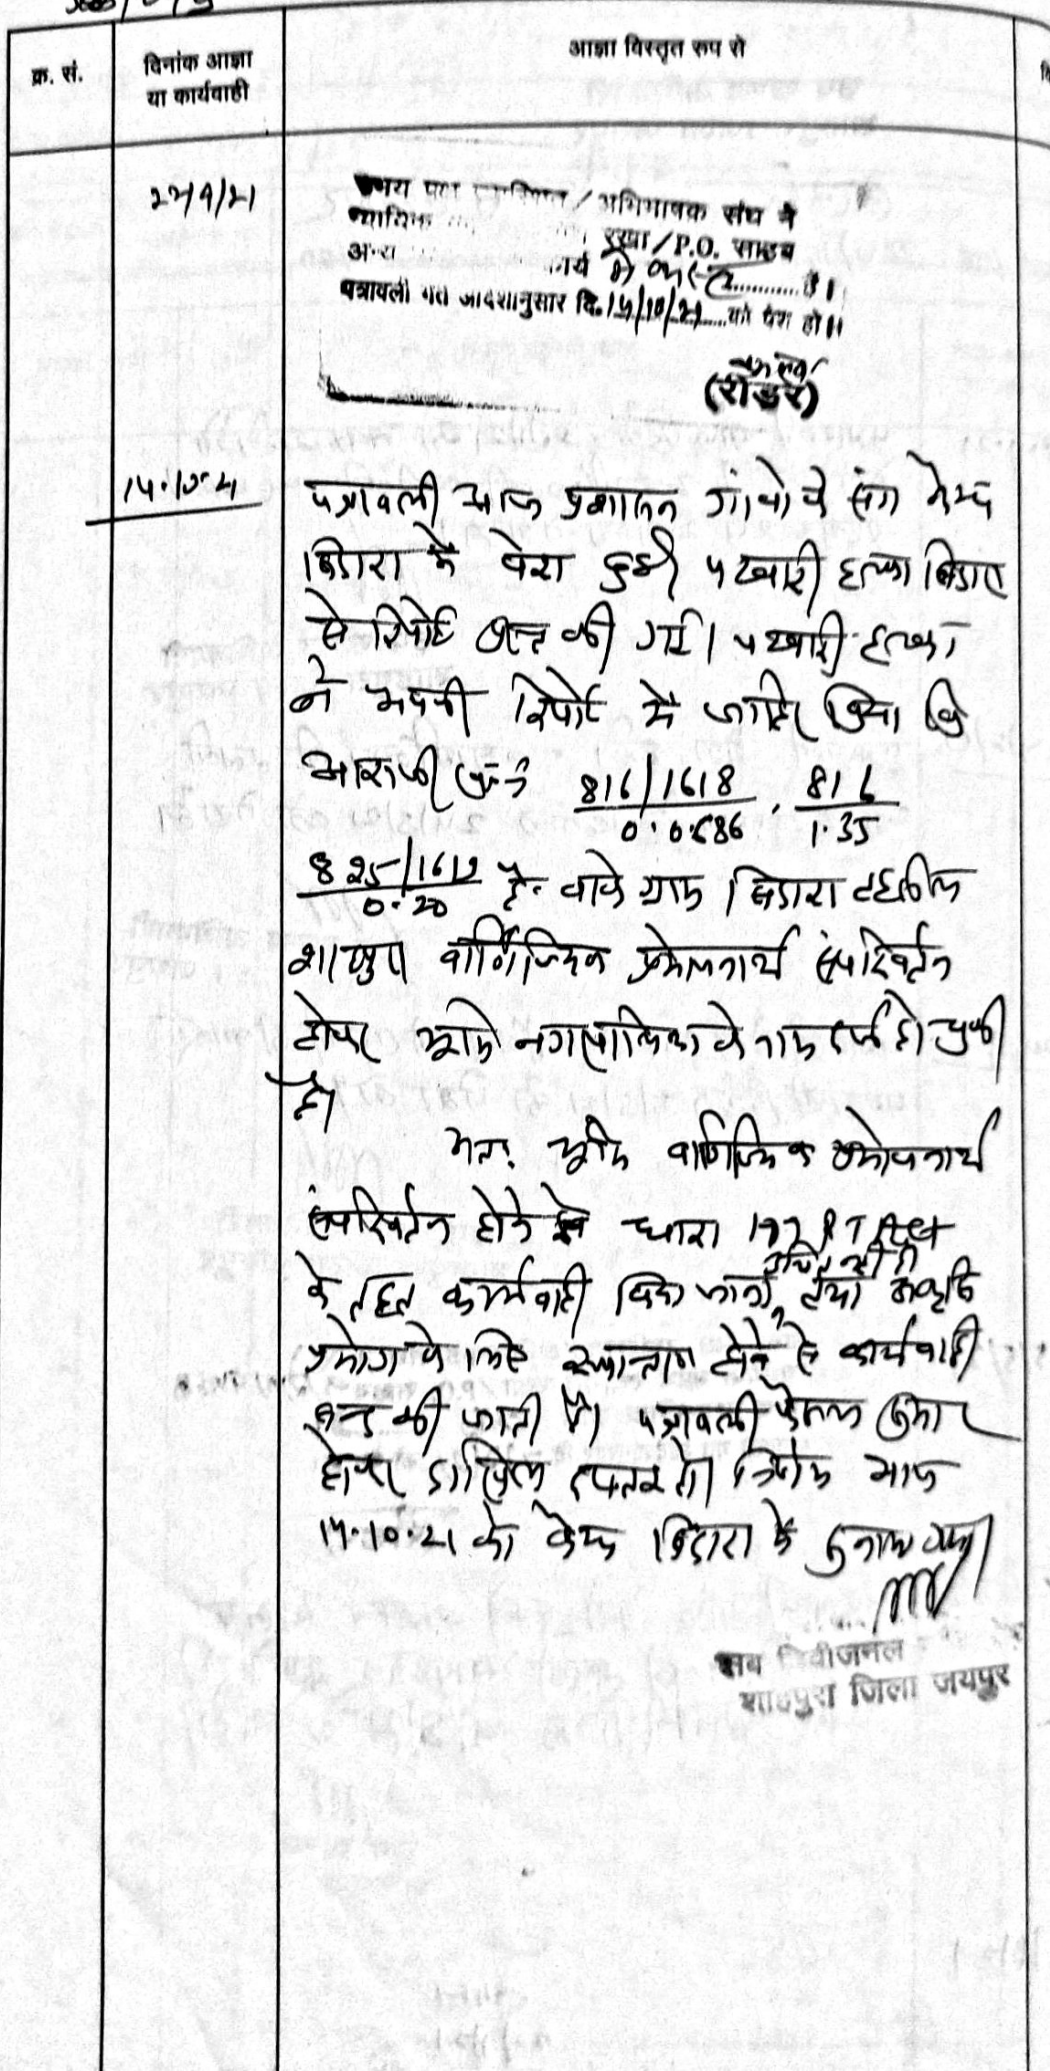 क्र. सं.
दिनांक आज्ञा
या कार्यवाही
आज्ञा विस्तृत रूप से
अभिभाषक संघ ने
न्यायिक रखा/P.O. साहब
अन्य कार्य में व्यस्त है।
पत्रावली गत आदेशानुसार दि. 14/10/21 को पेश हो।।
(रीडर)
14.10.21
पत्रावली आज प्रशासन गांवो के संग केम्प
बिडारा में पेश हुई। पटवारी हल्का बिडारा
से रिपोर्ट प्राप्त की गई। पटवारी हल्का
ने अपनी रिपोर्ट में जाहिर किया कि
आराजी ख.नं. 816/1618 , 816
1.35
0.20 है. वाके ग्राम बिडारा तहसील
शाहपुरा वाणिज्यिक प्रयोजनार्थ संपरिवर्तन
होकर भूमि नगरपालिका के नाम दर्ज हो चुकी
है।
अतः भूमि वाणिज्यिक प्रयोजनार्थ
संपरिवर्तन होने से धारा 177 RT Act
के तहत कार्यवाही किया जाना उचित नहीं है तथा अकृषि
प्रयोग के लिए होने से कार्यवाही
की जाती है। पत्रावली फैसल शुमार
होकर दाखिल दफ्तर हो। निर्णय आज
14.10.21 को केम्प बिडारा में सुनाया गया।
सब डिवीजनल
शाहपुरा जिला जयपुर